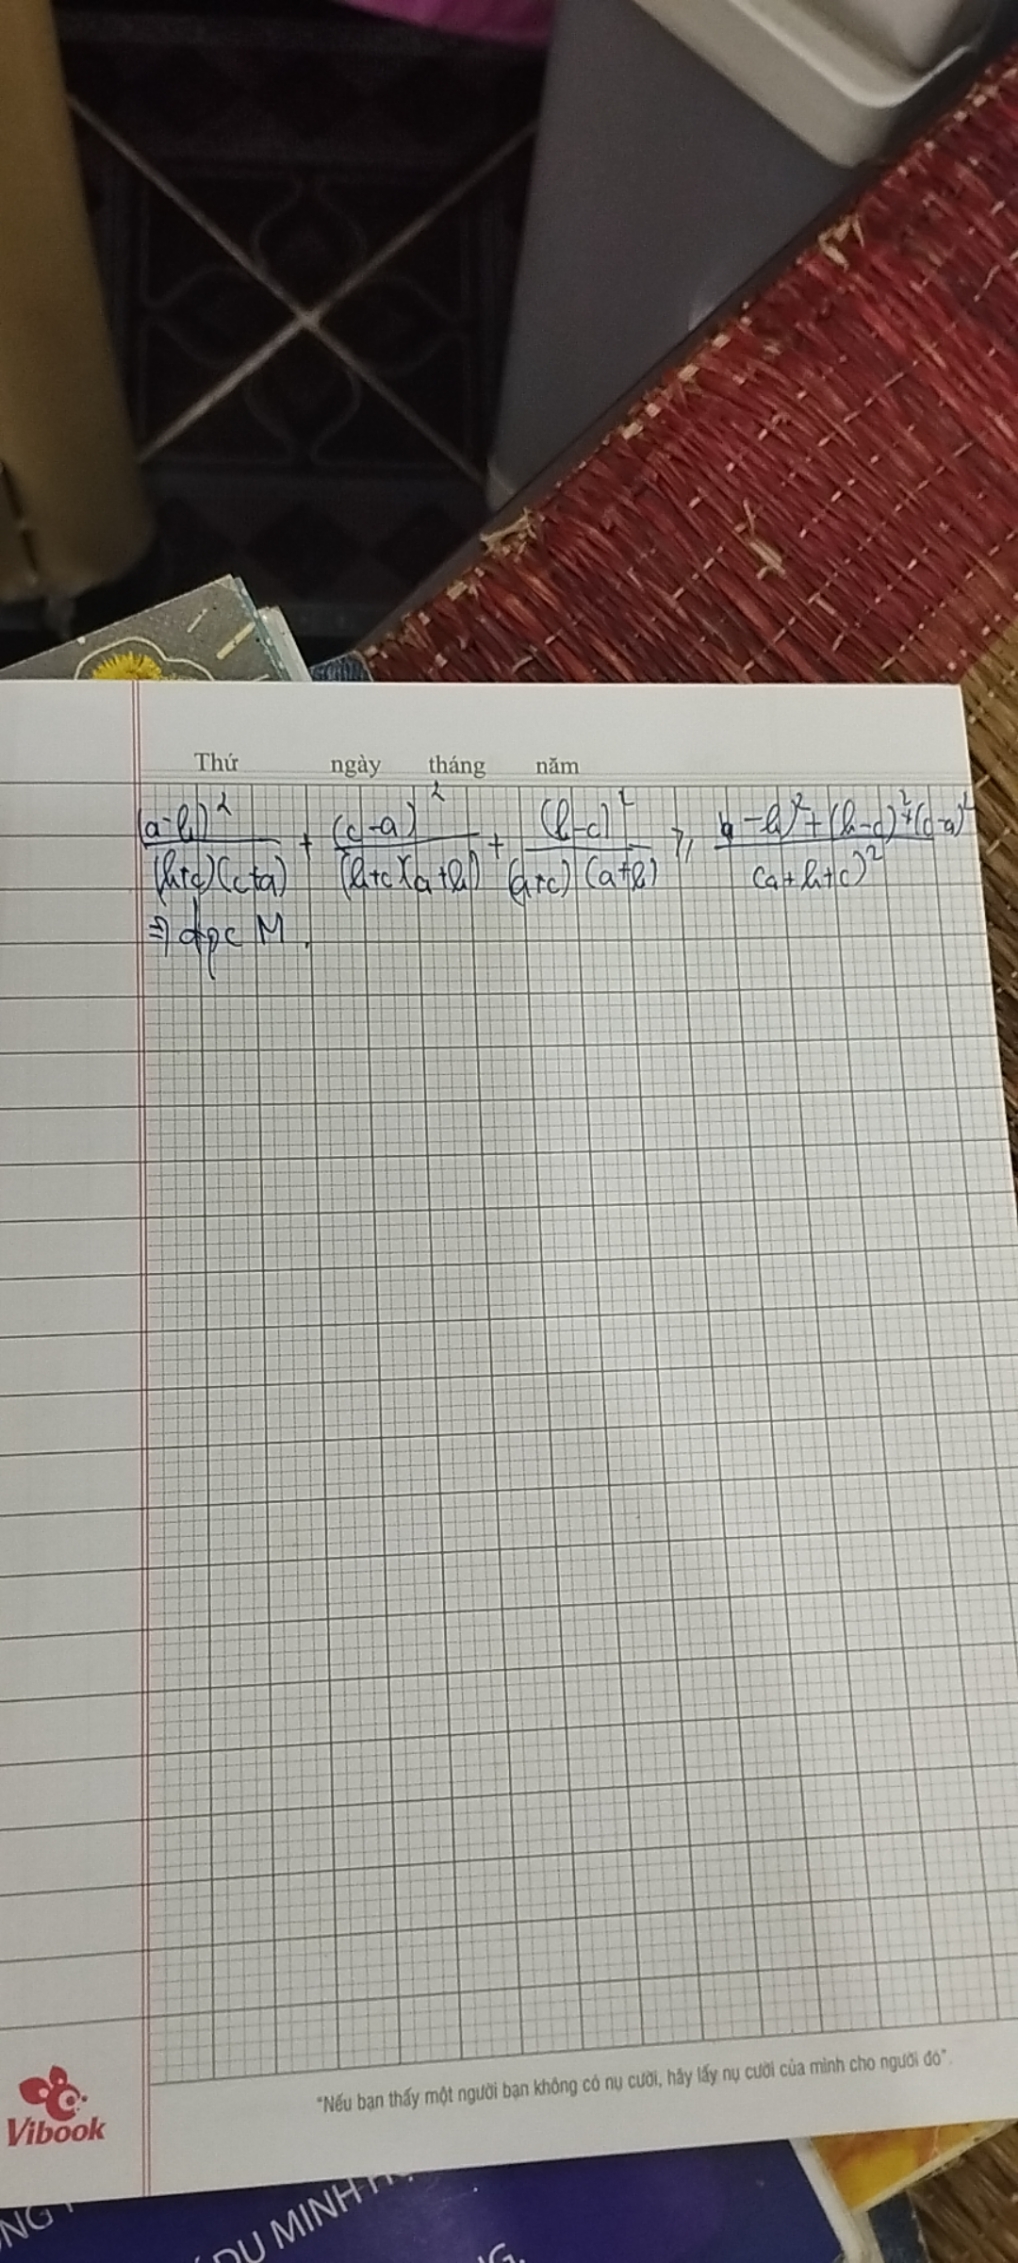 Thứ ngày tháng năm
(a-b)²/(b+c)(c+a) + (c-a)²/(b+c)(a+b) + (b-c)²/(a+c)(a+b) ≥ (a-b)²+(b-c)²+(c-a)²/(a+b+c)²
⇒ đpcM.
"Nếu bạn thấy một người bạn không có nụ cười, hãy lấy nụ cười của mình cho người đó".
Vibook
DU MINH
NG.